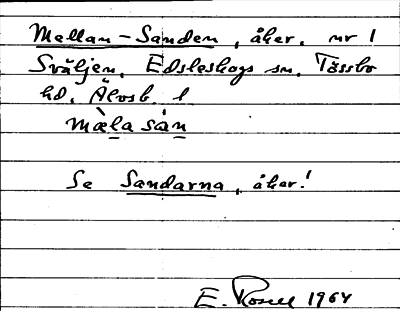 Mellan-Sanden, åker, nr 1
Sväljen, Edsleskogs sn, Tössbo
hd, Älvsb. l
mæ̀la sàn
Se Sandarna, åker!
E. Rosell 1964